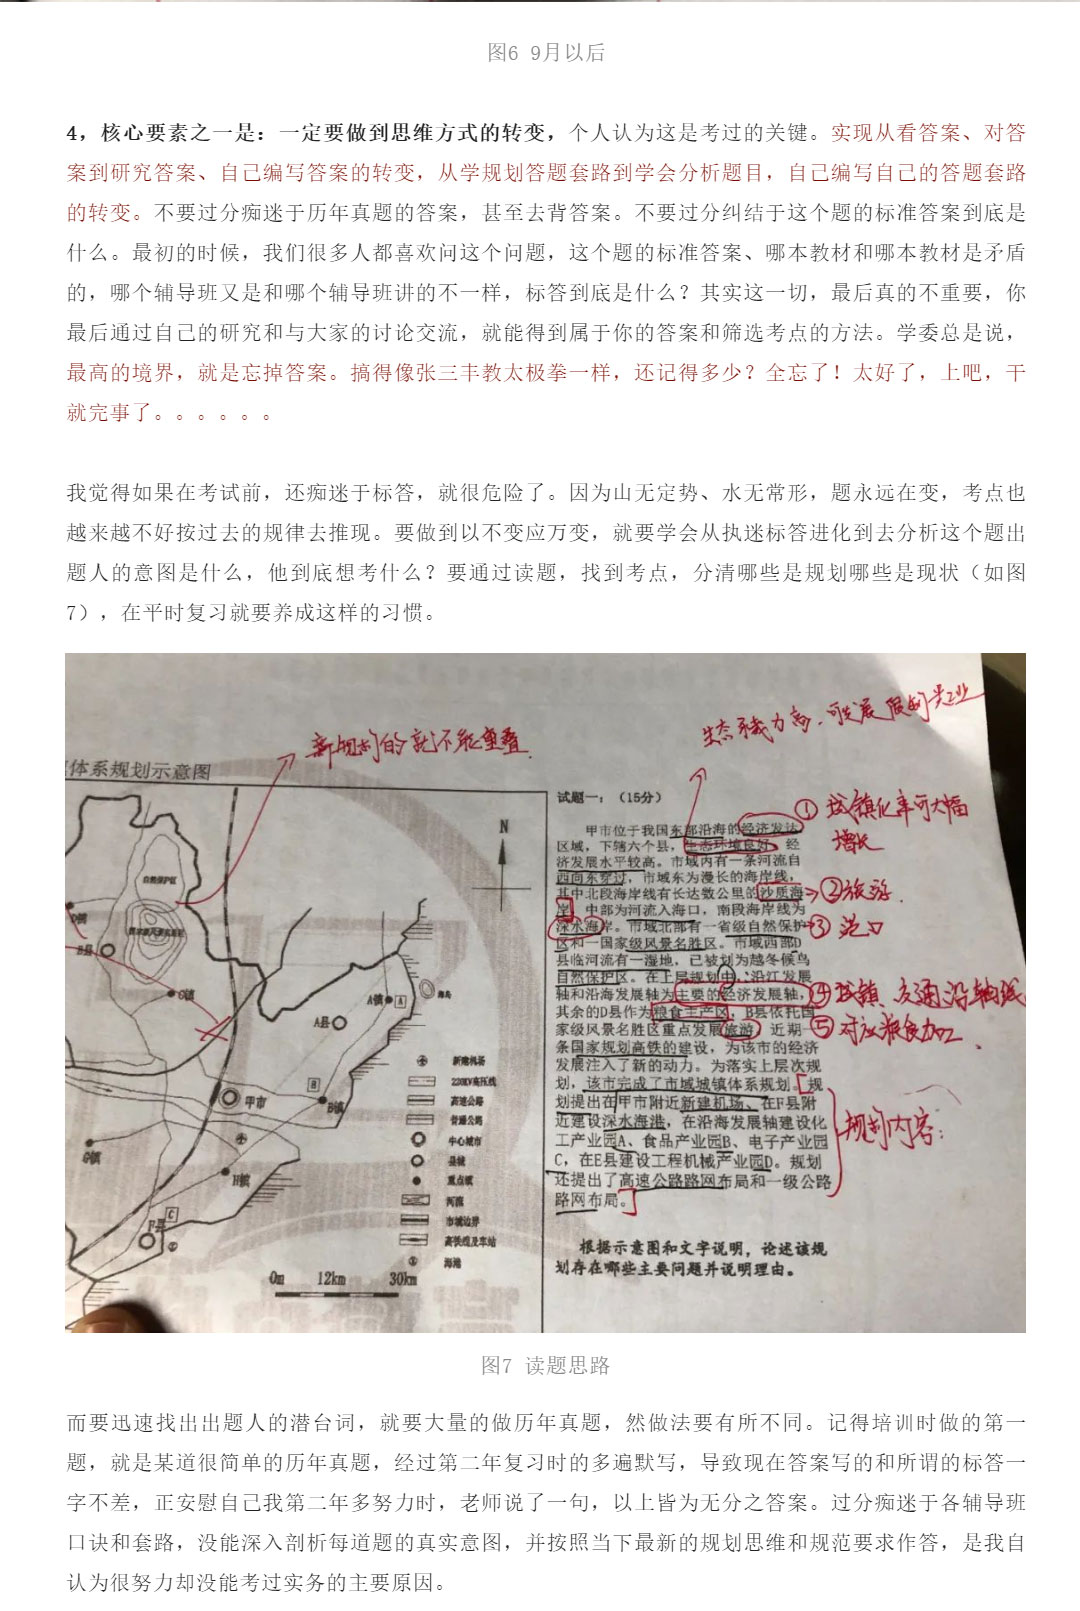 图6 9月以后
4，核心要素之一是：一定要做到思维方式的转变，个人认为这是考过的关键。实现从看答案、对答
案到研究答案、自己编写答案的转变，从学规划答题套路到学会分析题目，自己编写自己的答题套路
的转变。不要过分痴迷于历年真题的答案，甚至去背答案。不要过分纠结于这个题的标准答案到底是
什么。最初的时候，我们很多人都喜欢问这个问题，这个题的标准答案、哪本教材和哪本教材是矛盾
的，哪个辅导班又是和哪个辅导班讲的不一样，标答到底是什么？其实这一切，最后真的不重要，你
最后通过自己的研究和与大家的讨论交流，就能得到属于你的答案和筛选考点的方法。学委总是说，
最高的境界，就是忘掉答案。搞得像张三丰教太极拳一样，还记得多少？全忘了！太好了，上吧，干
就完事了。。。。。。
我觉得如果在考试前，还痴迷于标答，就很危险了。因为山无定势、水无常形，题永远在变，考点也
越来越不好按过去的规律去推现。要做到以不变应万变，就要学会从执迷标答进化到去分析这个题出
题人的意图是什么，他到底想考什么？要通过读题，找到考点，分清哪些是规划哪些是现状（如图
7），在平时复习就要养成这样的习惯。
新规划的就不能重叠
生态承载力高，可发展
体系规划示意图
自然保护区
B县
C镇
A镇 A
A县
海岛
B
甲市
B镇
G镇
H镇
C
F县
N
新建机场
220KV高压线
高速公路
普通公路
中心城市
县城
重点镇
河流
市域边界
高铁线及车站
海港
0m 12km 30km
试题一：（15分）
甲市位于我国东部沿海的经济发达
区域，下辖六个县，生态环境良好，经
济发展水平较高。市域内有一条河流自
西向东穿过，市域东为漫长的海岸线，
其中北段海岸线有长达数公里的沙质海
岸，中部为河流入海口，南段海岸线为
深水海岸。市域北部有一省级自然保护
区和一国家级风景名胜区。市域西部D
县临河流有一湿地，已被划为越冬候鸟
自然保护区。在上层规划中，沿江发展
轴和沿海发展轴为主要的经济发展轴，
其余的D县作为粮食主产区，B县依托国
家级风景名胜区重点发展旅游，近期一
条国家规划高铁的建设，为该市的经济
发展注入了新的动力。为落实上层次规
划，该市完成了市域城镇体系规划。规
划提出在甲市附近新建机场、在F县附
近建设深水海港，在沿海发展轴建设化
工产业园A、食品产业园B、电子产业园
C，在E县建设工程机械产业园D。规划
还提出了高速公路路网布局和一级公路
路网布局。
根据示意图和文字说明，论述该规
划存在哪些主要问题并说明理由。
①城镇化率可大幅
增长
②旅游
③港口
④城镇、交通沿轴线
⑤对应粮食加工
规划内容：
图7 读题思路
而要迅速找出出题人的潜台词，就要大量的做历年真题，然做法要有所不同。记得培训时做的第一
题，就是某道很简单的历年真题，经过第二年复习时的多遍默写，导致现在答案写的和所谓的标答一
字不差，正安慰自己我第二年多努力时，老师说了一句，以上皆为无分之答案。过分痴迷于各辅导班
口诀和套路，没能深入剖析每道题的真实意图，并按照当下最新的规划思维和规范要求作答，是我自
认为很努力却没能考过实务的主要原因。